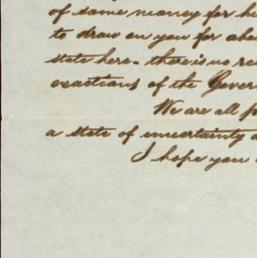 of some money for he
to draw on you for abo
state here. there is no re
exactions of the Gover
We are all p
a state of uncertainty a
I hope you